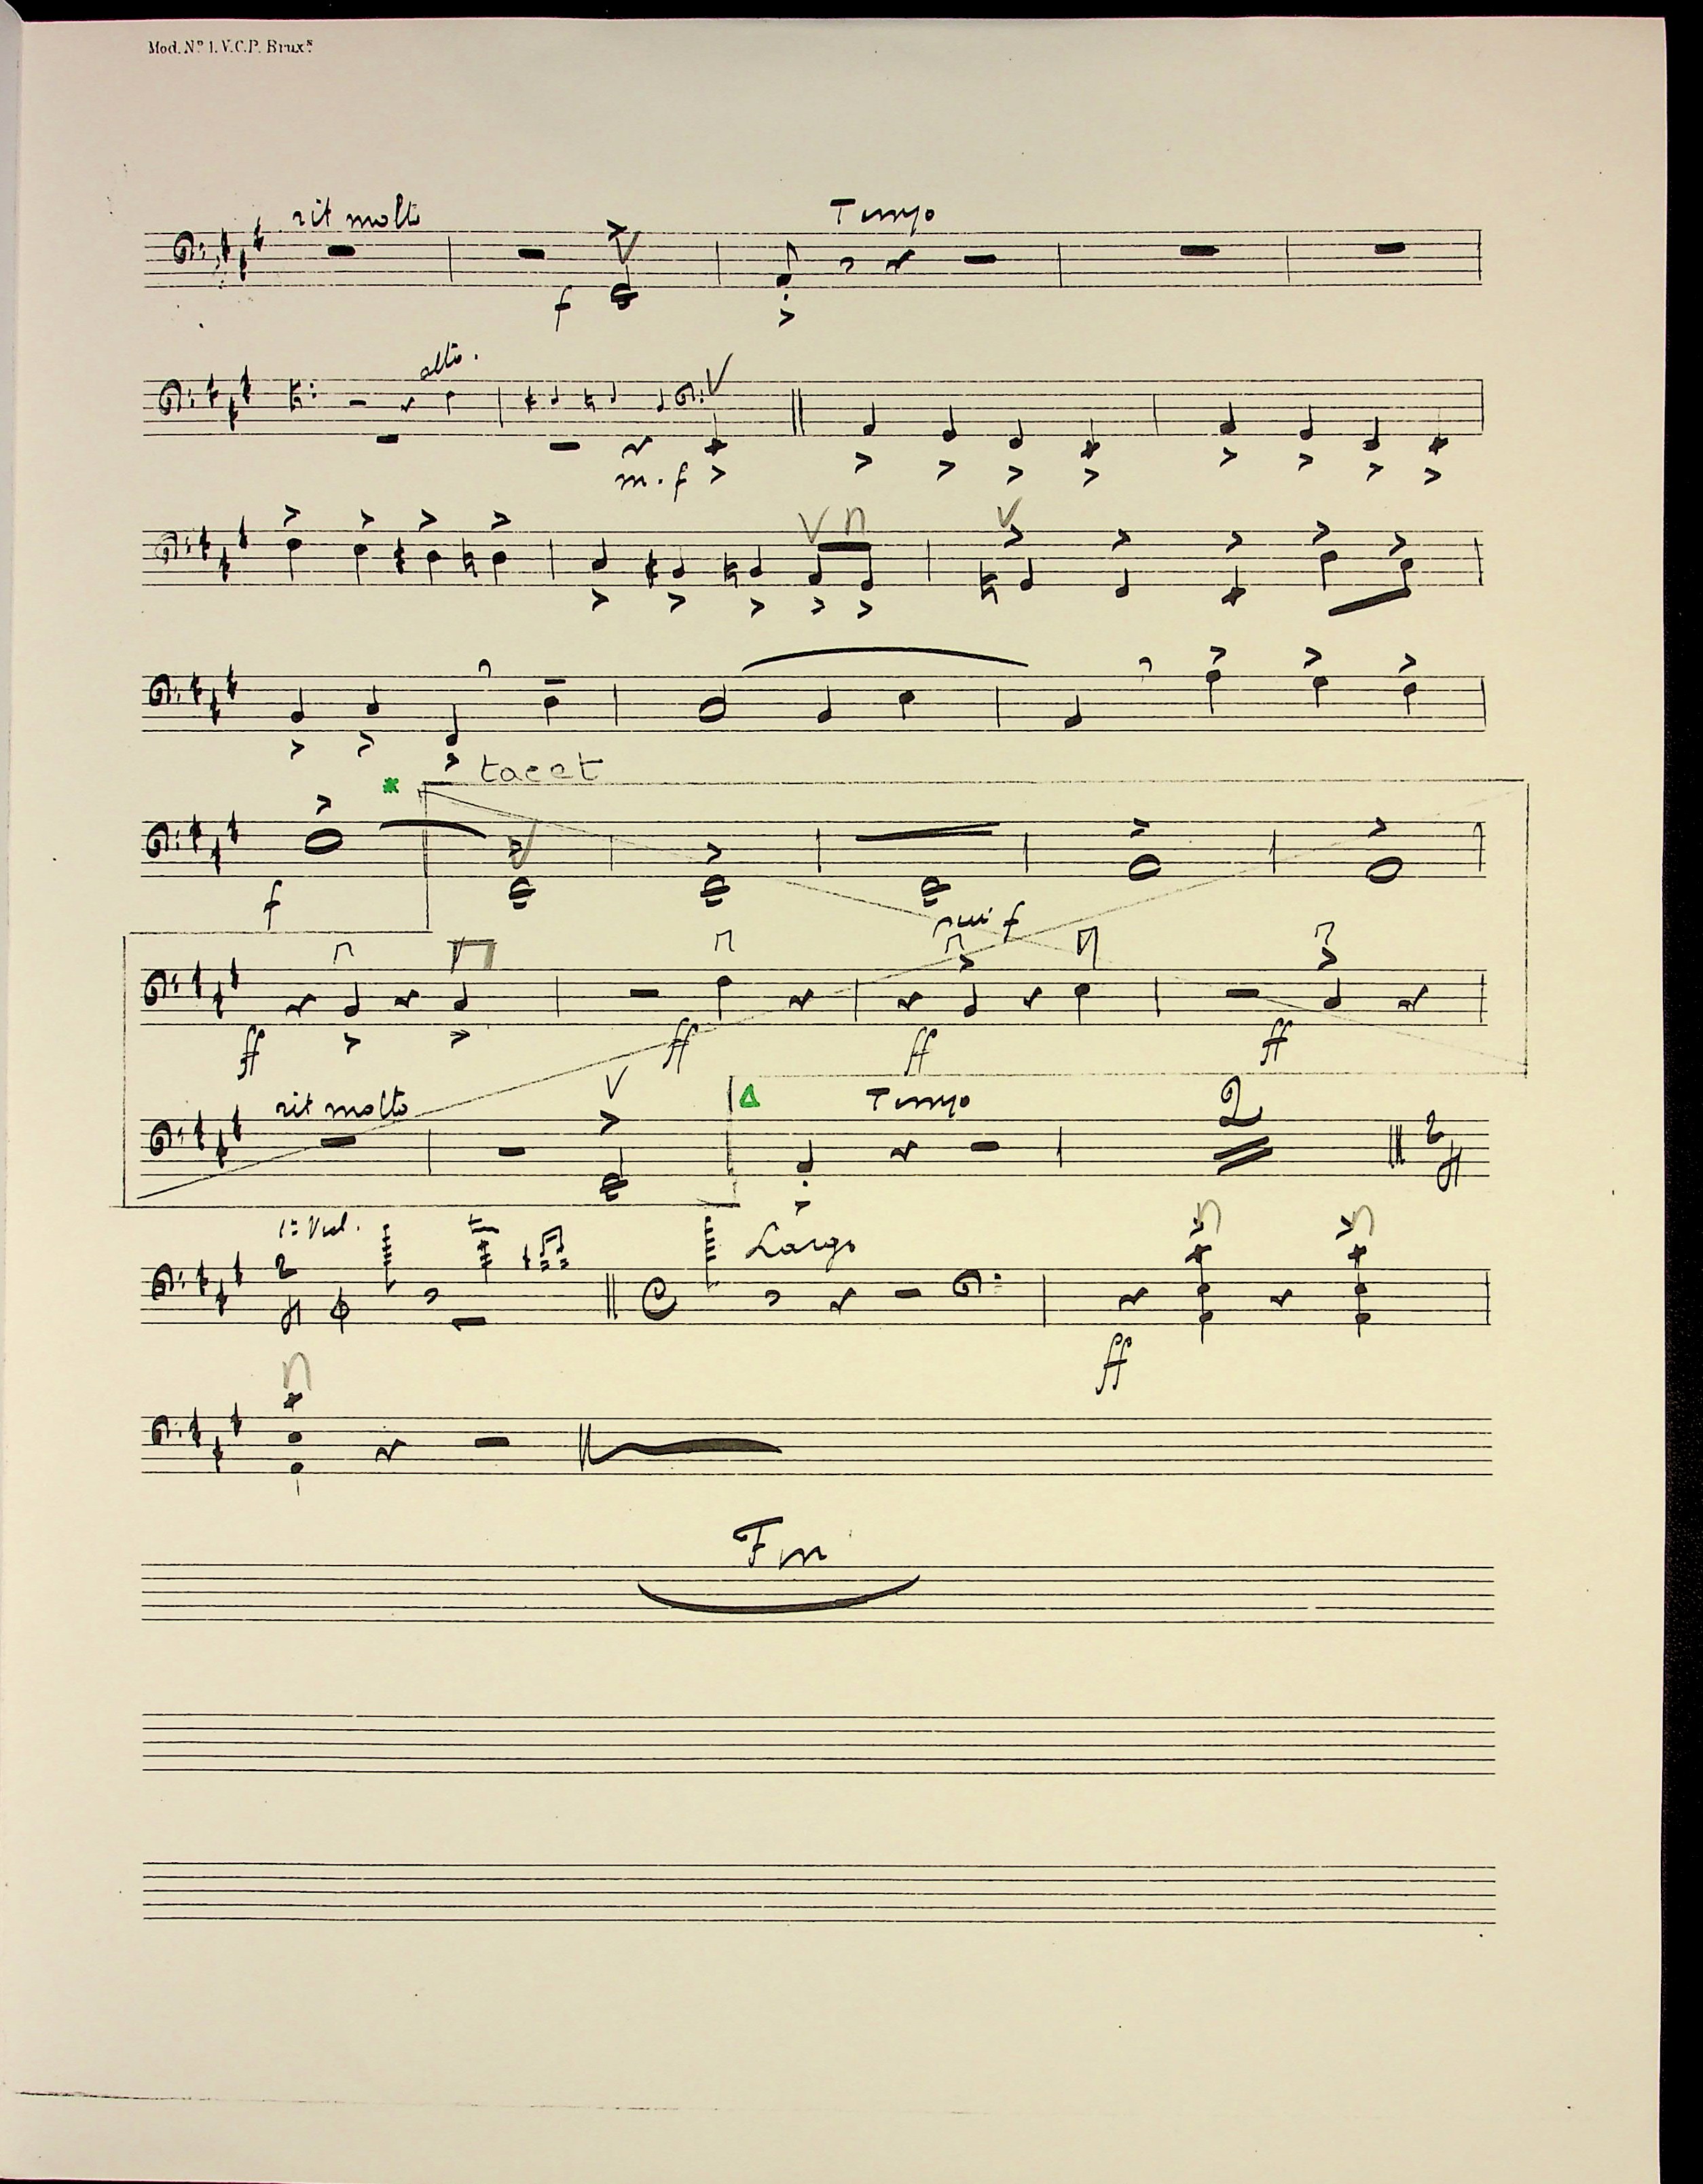 Mod. Nº 1. V.C.P. Bruxˢ
rit molto Tempo
f
alto.
m.f
tacet
f
f
ff ff ff ff
rit molto Tempo 2 2
Largo
2
ff
Fin